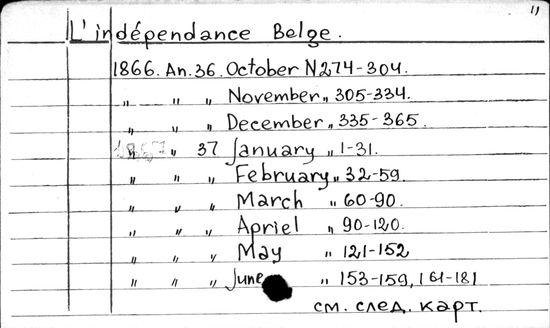 11
L'indépendance Belge.
1866. An. 36. October N 274-304.
" " " November " 305-334.
" " " December " 335-365.
1867 " 37 January " 1-31.
" " " February " 32-59.
" " " March " 60-90.
" " " Apriel " 90-120.
" " " May " 121-152
" " " June " 153-159, 161-181
см. след. карт.